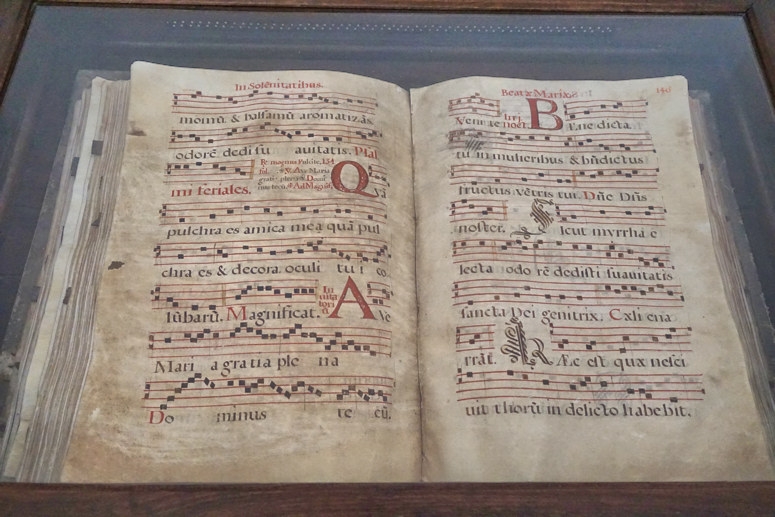 In Solẽnitatibus.
momũ & balsamũ aromatizãs
odorẽ dedi su auitatis. Psal
mi feriales.
Q
pulchra es amica mea quã pul
chra es & decora. oculi tu i co
lũbarũ. Magnificat. A Ve
Mari a gratia ple na
Do minus te cũ.
Beatæ Mariæ.
Venite B Ene dicta
tu in mulieribus & bñdictus
fructus vẽtris tui. Dñe Dñs
noster. Icut myrrha e
lecta odo rẽ dedisti suauitatis
sancta Dei genitrix. Cæli ena
rrãt. Æc est quæ nesci
uit thorũ in delicto habebit.